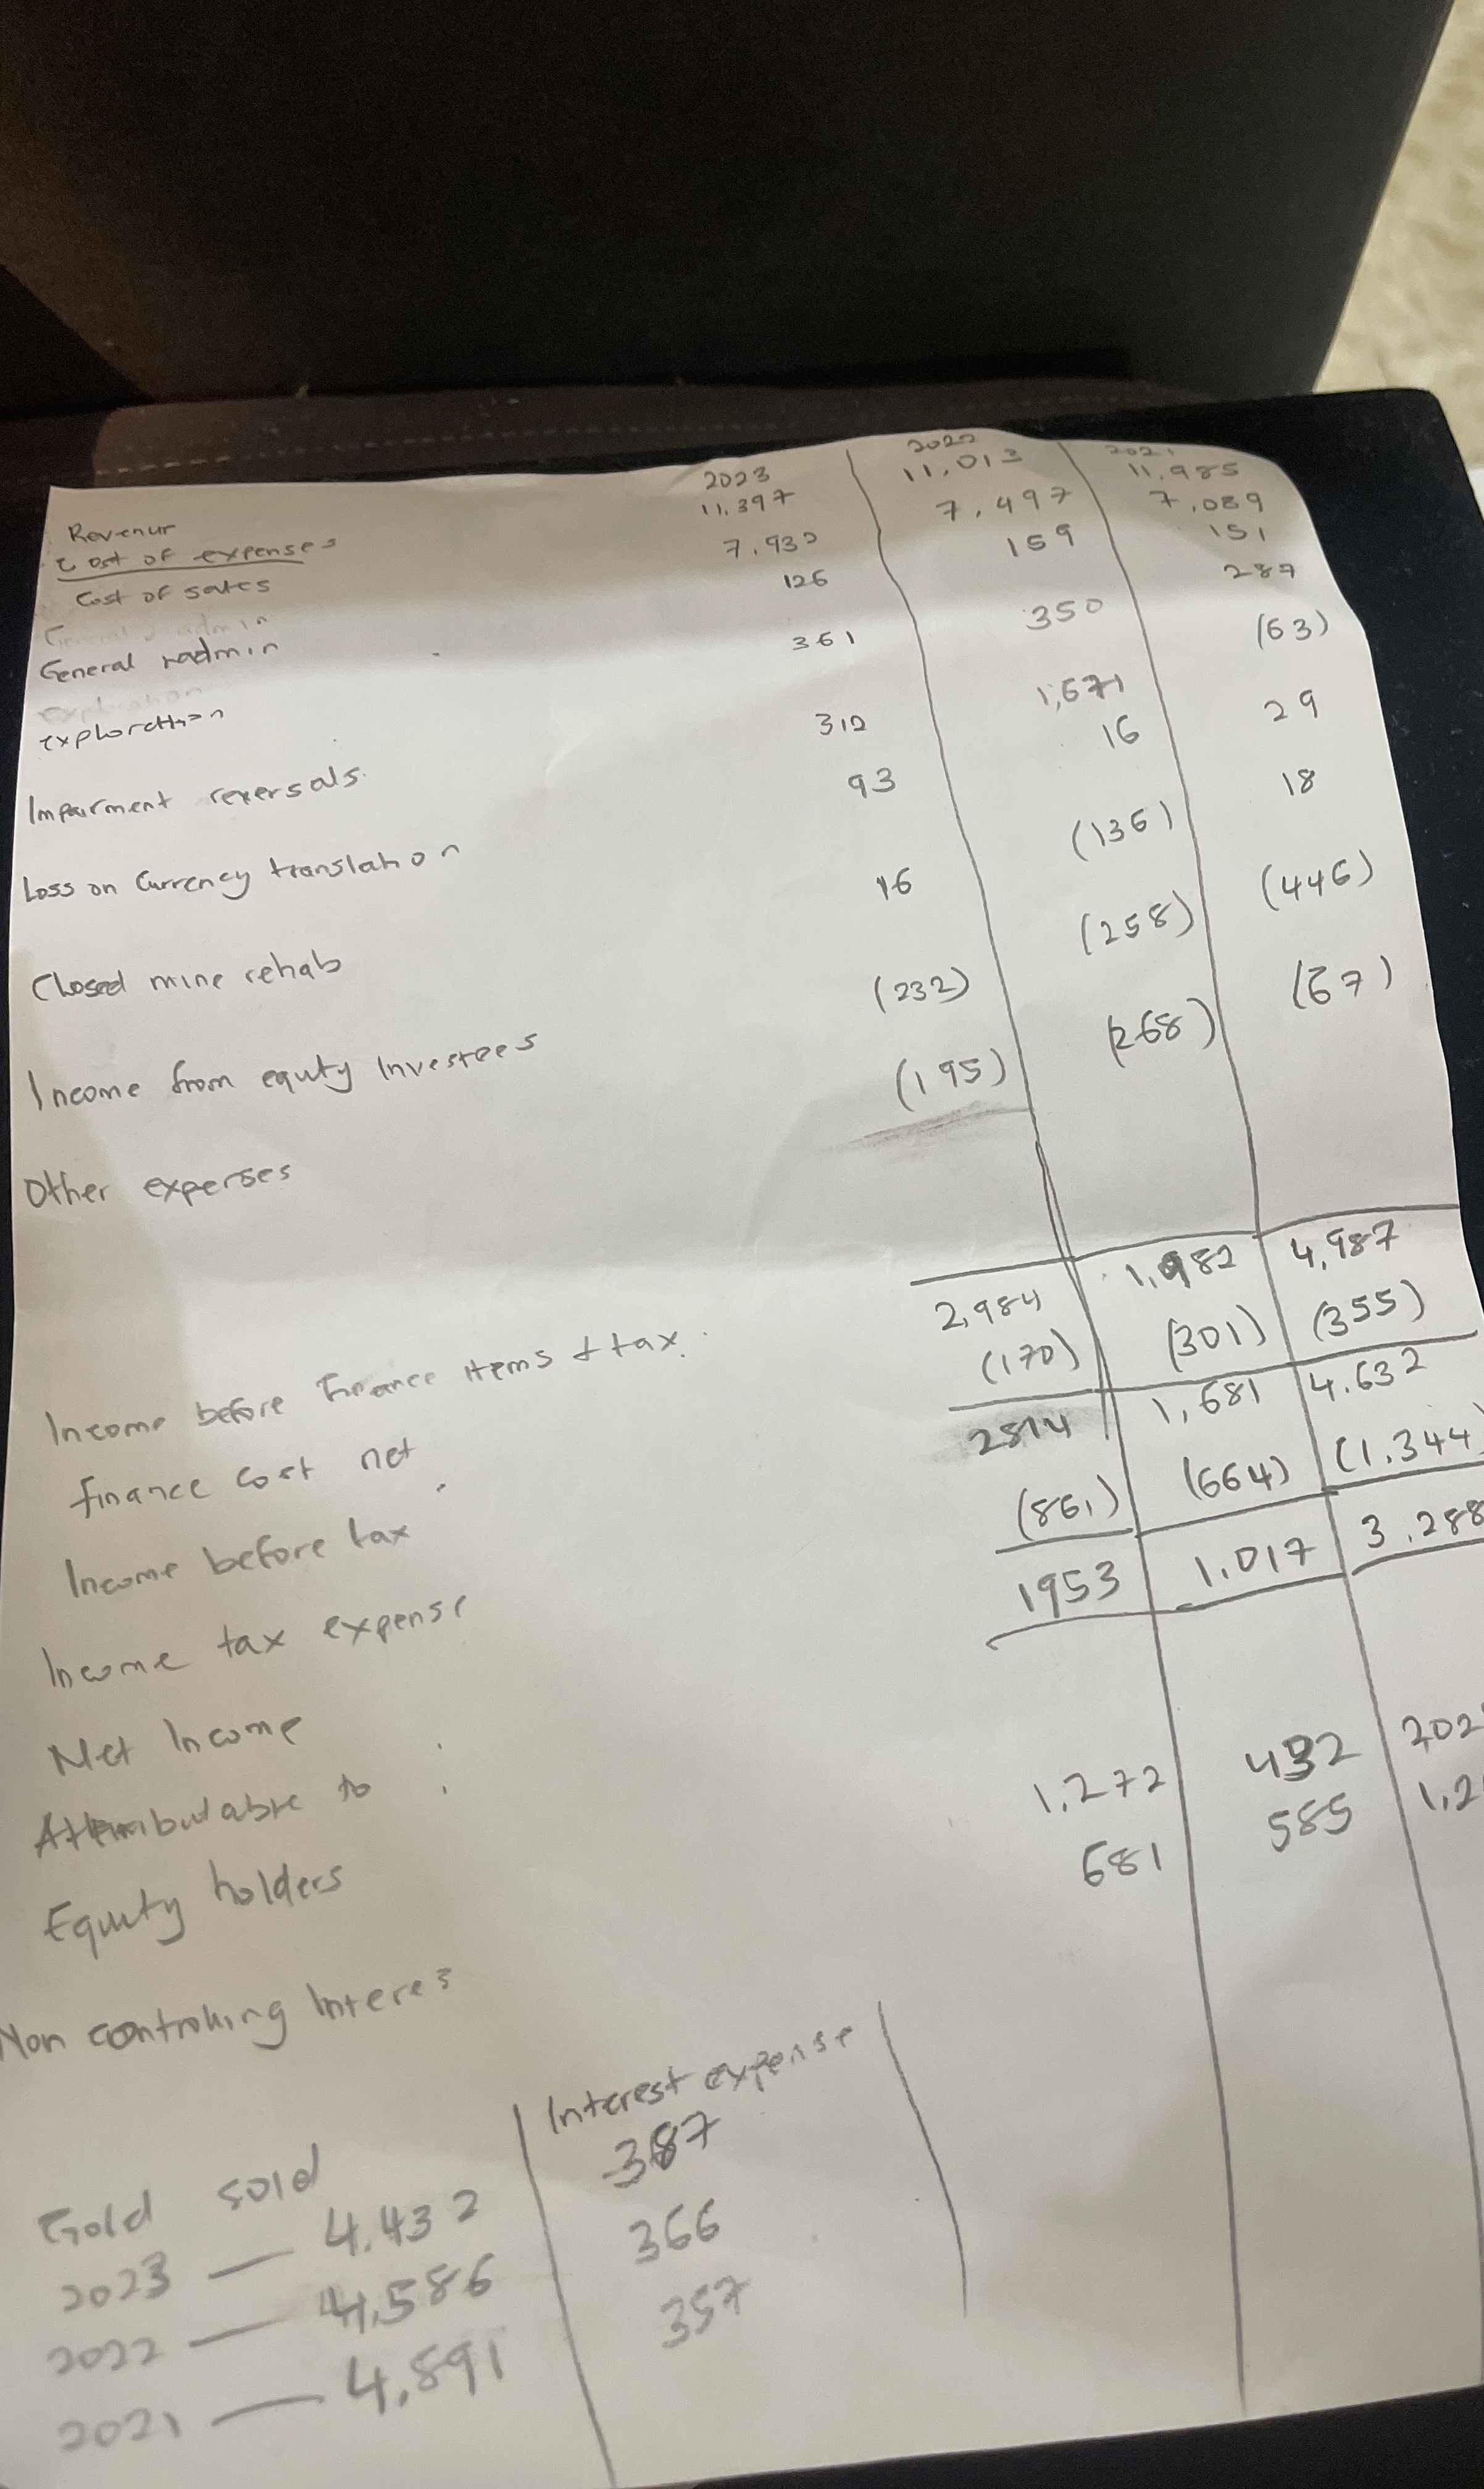 2023 2022 2021
Revenur 11,397 11,013 11,985
Cost of expenses
Cost of sales 7,932 7,497 7,089
General & admin
General & admin 126 159 151
Exploration
exploration 361 350 287
Impairment reversals. 312 1,671 (63)
Loss on Currency translation 93 16 29
Closed mine rehab 16 (136) 18
Income from equity Investees (232) (258) (446)
Other expenses (195) (268) (67)
Income before Finance items & tax. 2,984 1,982 4,987
finance cost net (170) (301) (355)
Income before tax 2814 1,681 4.632
Income tax expense (861) (664) (1.344)
Net Income 1953 1.017 3.288
Attributable to :
Equity holders 1.272 432 202
Non controlling Interes 681 585 1.2
Gold sold Interest expense
2023 — 4.432 387
2022 — 4,586 366
2021 — 4,891 357